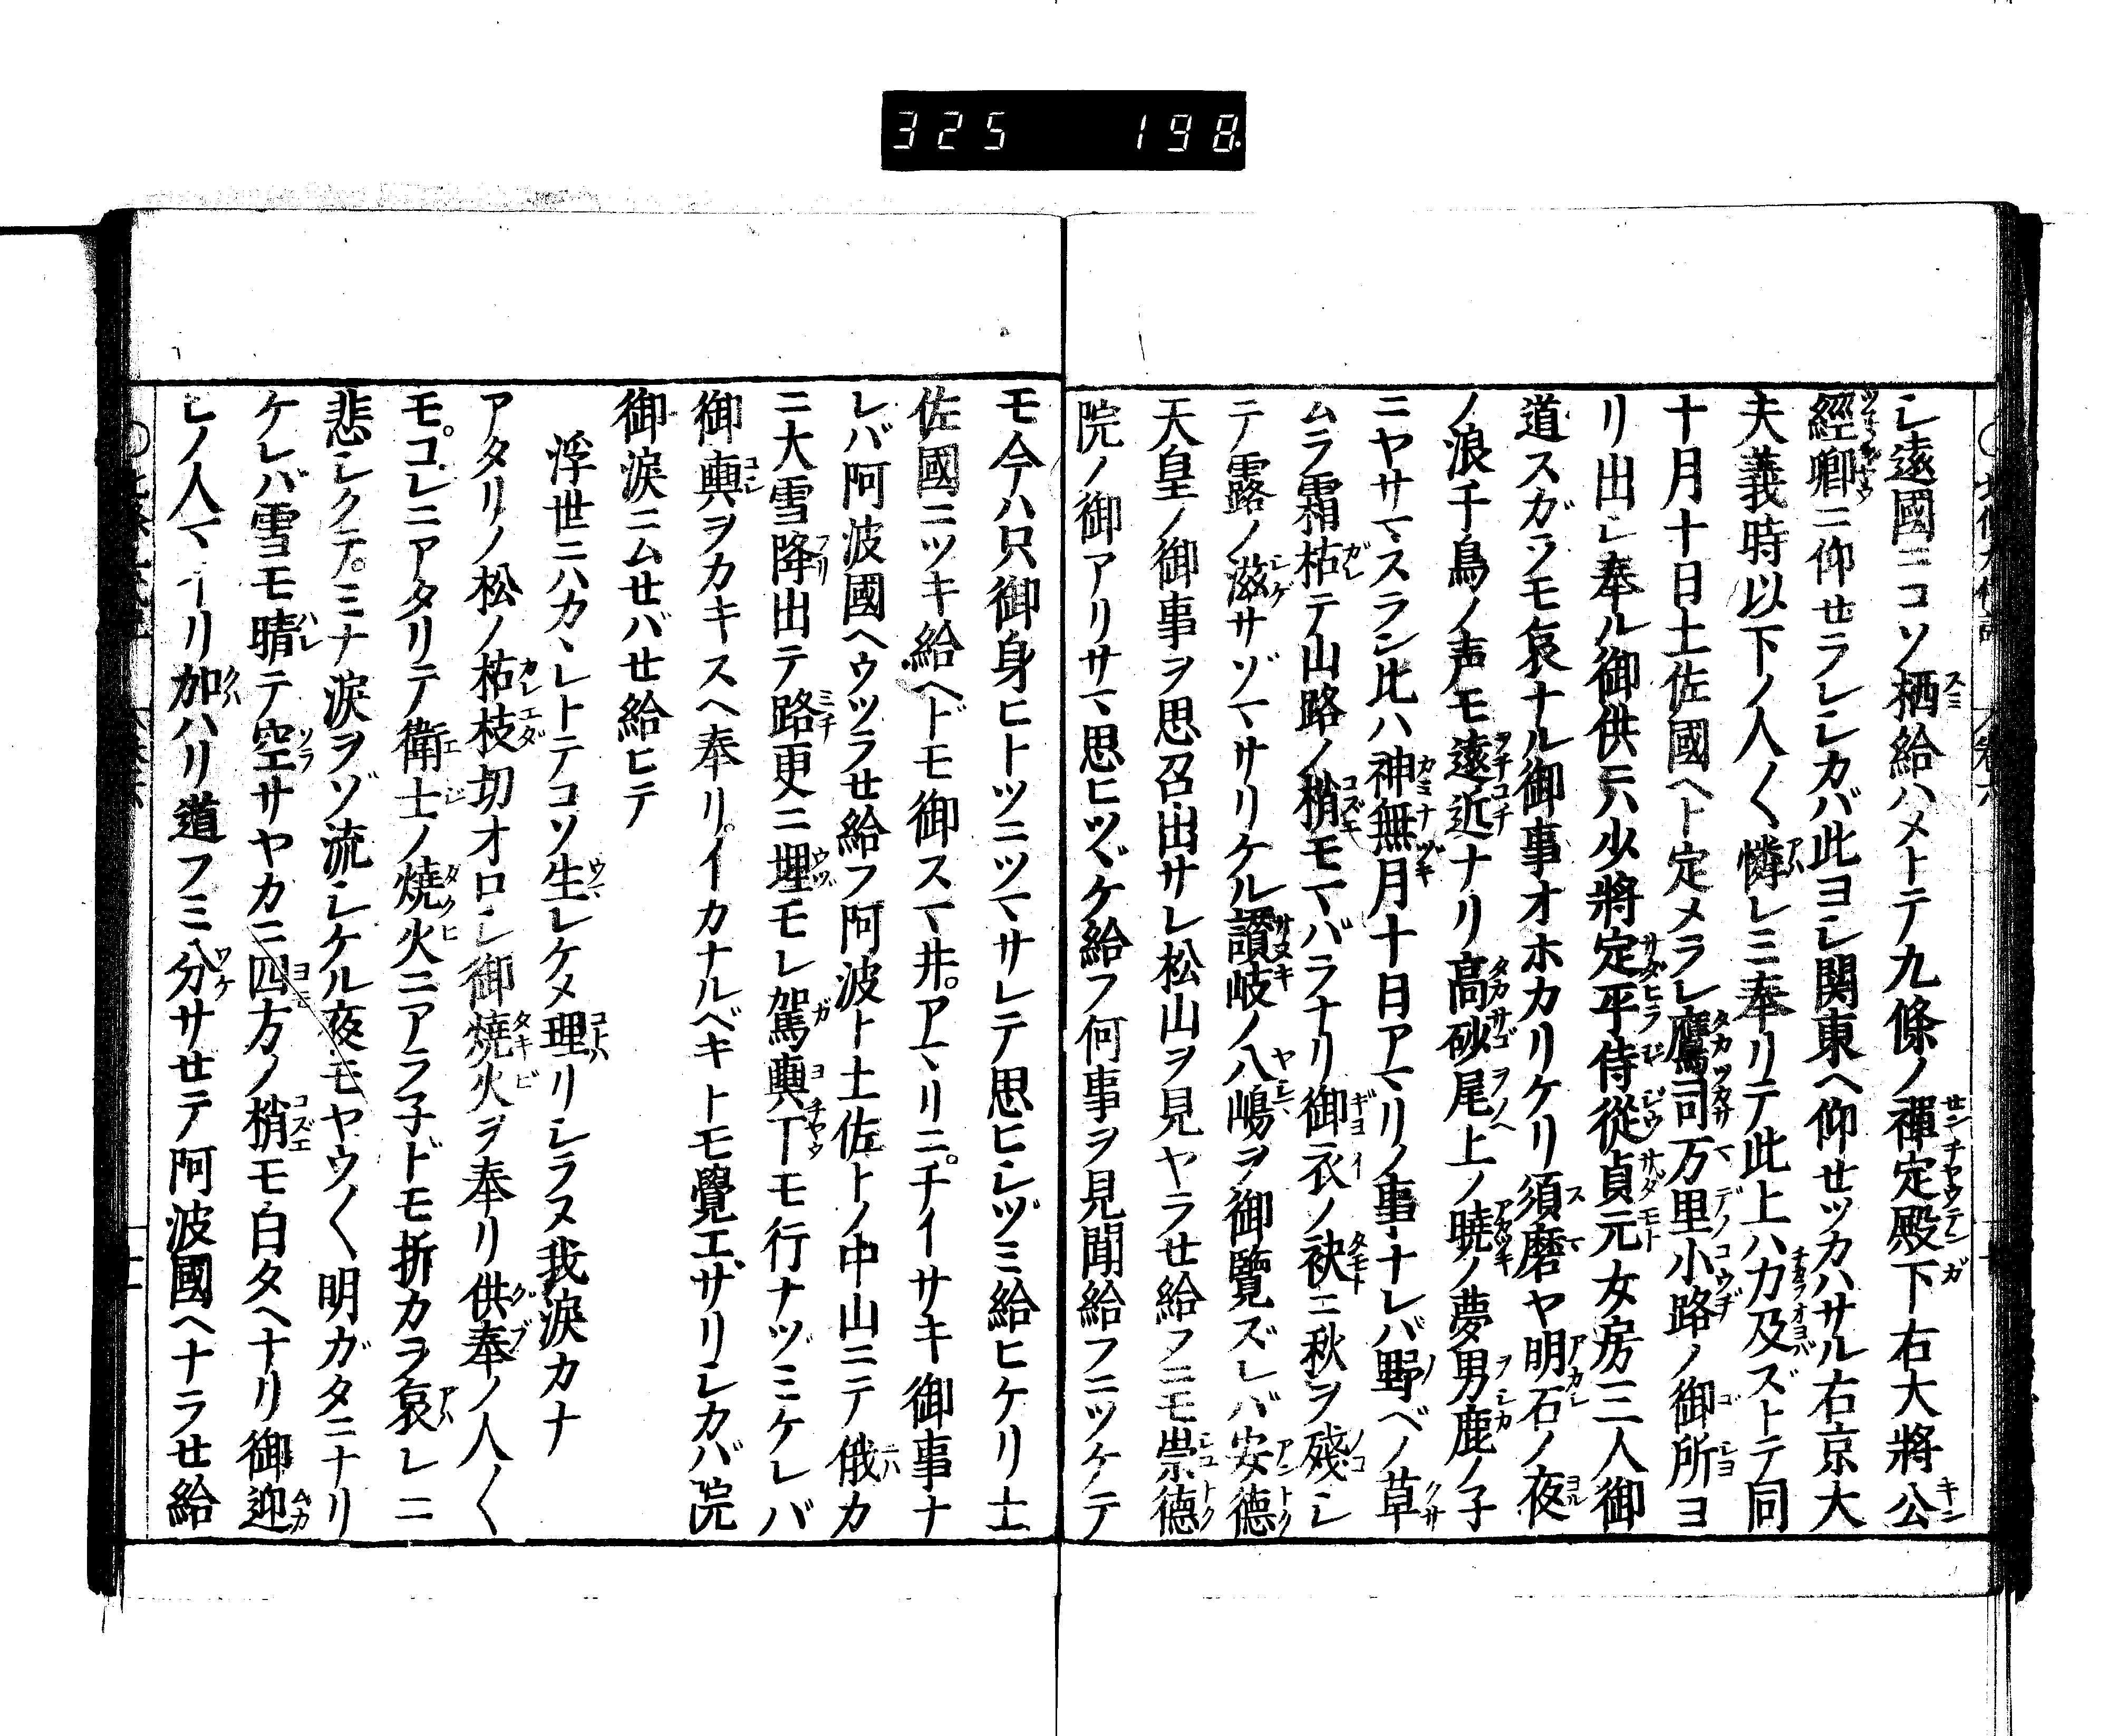 325 198.
シ遠國ニコソ栖給ハメトテ九條ノ禪定殿下右大將公
經卿ニ仰セラレシカバ此ヨシ関東ヘ仰セツカハサル右京大
夫義時以下ノ人〱憐レミ奉リテ此上ハ力及ズトテ同
十月十日土佐國ヘト定メラレ鷹司万里小路ノ御所ヨ
リ出シ奉ル御供ニハ少將定平侍從貞元女房三人御
道スガラモ哀ナル御事オホカリケリ須磨ヤ明石ノ夜
ノ浪千鳥ノ声モ遠近ナリ高砂尾上ノ曉ノ夢男鹿ノ子
ニヤサマスラン比ハ神無月十日アマリノ事ナレバ野ベノ草
ムラ霜枯テ山路ノ梢モマバラナリ御衣ノ袂ニ秋ヲ殘シ
テ露ノ滋サゾマサリケル讃岐ノ八嶋ヲ御覽ズレバ安德
天皇ノ御事ヲ思召出サレ松山ヲ見ヤラセ給フニモ崇德
院ノ御アリサマ思ヒツヾケ給フ何事ヲ見聞給フニツケテ
モ今ハ只御身ヒトツニツマサレテ思ヒシヅミ給ヒケリ土
佐國ニツキ給ヘドモ御スマ井。アマリニ。チイサキ御事ナ
レバ阿波國ヘウツラセ給フ阿波ト土佐トノ中山ニテ俄カ
ニ大雪降出テ路更ニ埋モレ駕輿丁モ行ナヅミケレバ
御輿ヲカキスヘ奉リ。イカナルベキトモ覺エザリシカバ院
御淚ニムセバせ給ヒテ
浮世ニハカヽレトテコソ生レケメ理リシラヌ我淚カナ
アタリノ松ノ枯枝切オロシ御燒火ヲ奉リ供奉ノ人〱
モ。コレニアタリテ衛士ノ燒火ニアラ子ドモ折カラ哀レニ
悲シクテ。ミナ淚ヲゾ流シケル夜モヤウ〱明ガタニナリ
ケレバ雪モ晴テ空サヤカニ四方ノ梢モ白タヘナリ御迎
ヒノ人マイリ加ハリ道フミ分サセテ阿波國ヘナラセ給